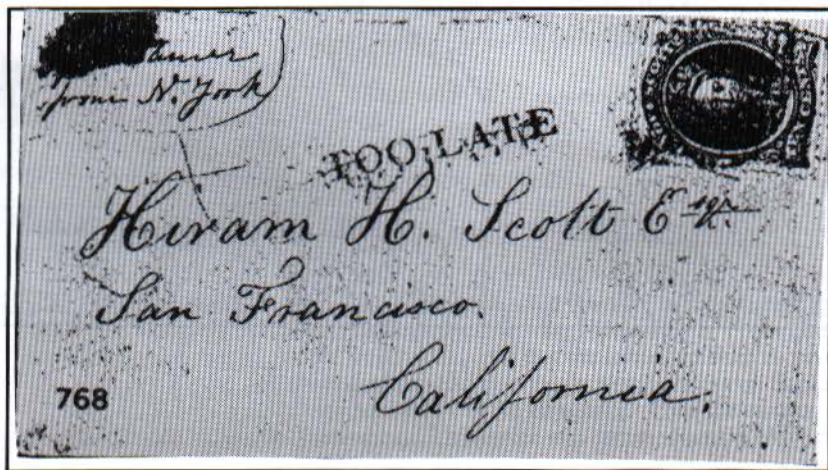 from N. York
TOO LATE
Hiram H. Scott Esqr.
San Francisco.
California.
768